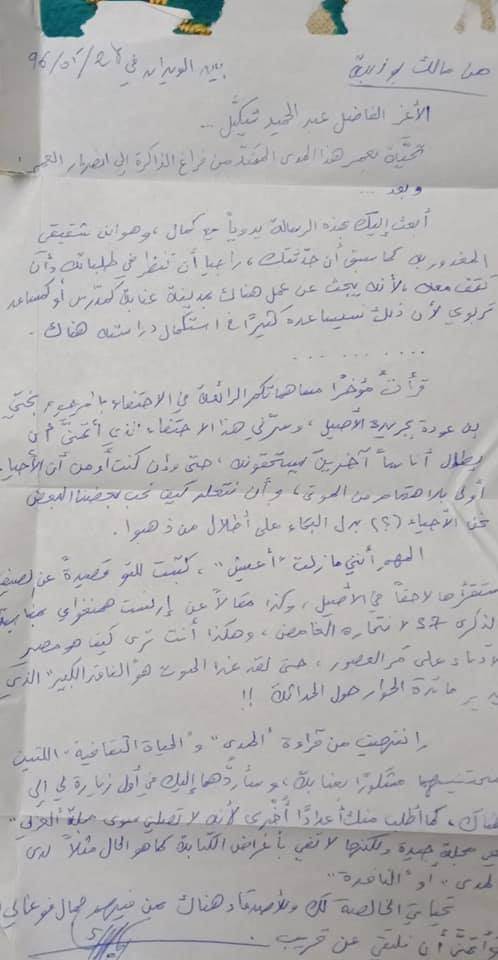 من مالك بوذيبة
بين الويدان في 28/05/96
الأعز الفاضل عبد الحميد شكيّل ...
تحيّة بعمر هذا المدى الممتد من فراغ الذاكرة إلى انصهار العمر
وبعد ...
أبعث إليك بهذه الرسالة يدوياً مع كمال، وهو ابن شقيقي
المغدور به كما سبق أن حدثتك، راجيا أن تنظر في طلباته وأن
تقف معه، لأنه يبحث عن عمل هناك بمدينة عنابة كمدرّس أو كمساعد
تربوي لأن ذلك سيساعده كثيرًا في استكمال دراسته هناك.
. . . . . . . .
قرأتُ مُؤخرًا مساهماتكم الرائعة في الاحتفاء بالمرحوم بختي
بن عودة بجريدة الأصيل، وسرّني هذا الاحتفاء الذي أتمنّى أن
يطال أناساً آخرين يستحقونه، حتى وإن كنتُ أومن أن الأحياء
أولى بالاهتمام من الموتى، وأن نتعلم كيف نحب بعضنا البعض
نحن الأحياء (؟؟) بدل البكاء على أطلال من ذهبوا.
المهم أنني مازلت "أعيش"، كتبت للتو قصيدةً عن
ستقرؤها لاحقاً في الأصيل، وكذا مقالاً عن إرنست همنغواي بمناسبة
الذكرى 37 لانتحاره الغامض، وهكذا أنت ترى كيف هو مصير
الأدباء على مر العصور، حتى لقد غدا الموت هو "الناقد الكبير" الذي
يدير مائدة الحوار حول الحداثة !!
انتهيت من قراءة "المدى" و"الحياة الثقافية" اللتين
مشكورًا بعنابة، وسأردّهما إليك في أول زيارة لي إلى
هناك، كما أطلب منك أعدادًا أخرى لأنه لا تصلني سوى مجلة "العربي"
وهي مجلة جيدة ولكنها لا تفي بأغراض الكتابة كما هو الحال مثلاً لدى
"المدى" أو "الناقدة"
تحياتي الخالصة لك وللأصدقاء هناك بمن فيهم جمال فوغالي
وأتمنّى أن نلتقي عن قريب.